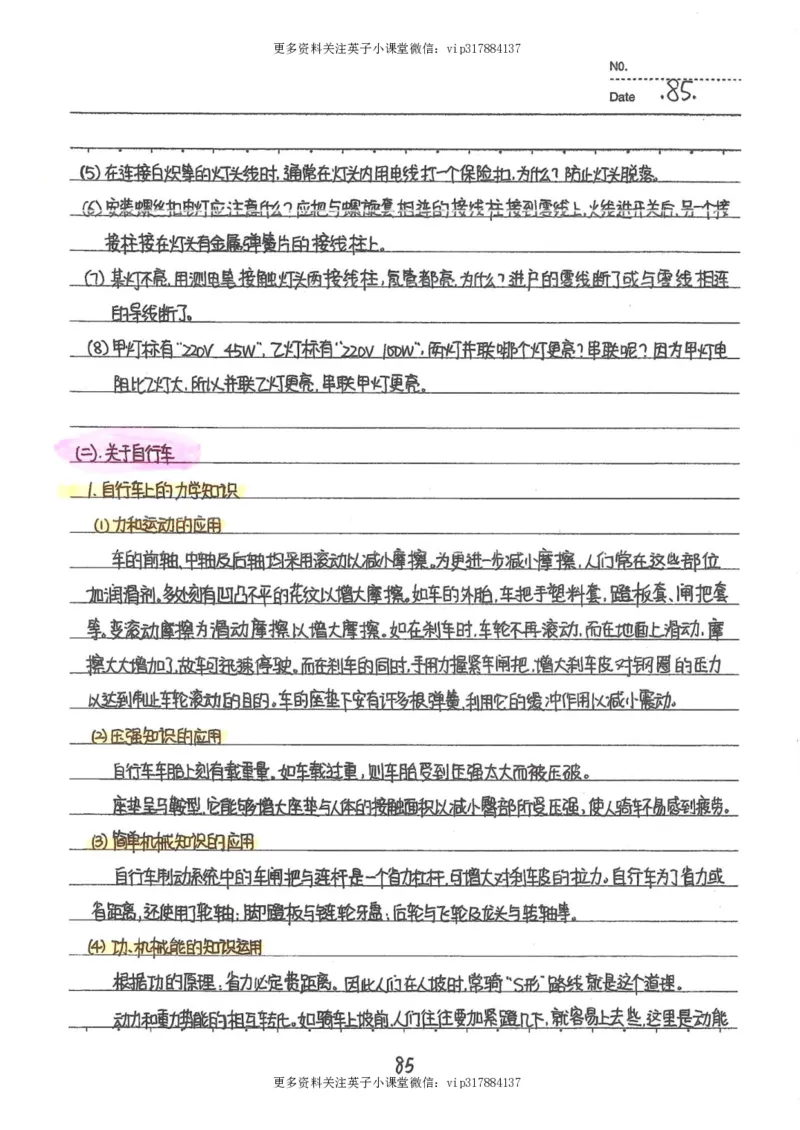 更多资料关注英子小课堂微信：vip317884137
NO.
Date .85.
(5)在连接白炽等的灯头线时,通常在灯头内用电线打一个保险扣,为什么?防止灯头脱落。
(6)安装螺丝扣电灯应注意什么?应把与螺旋套相连的接线柱接到零线上,火线进开关后,另一个接
接柱接在灯头有金属弹簧片的接线柱上。
(7)某灯不亮,用测电笔接触灯头两接线柱,氖管都亮,为什么?进户的零线断了或与零线相连
的导线断了。
(8)甲灯标有"220V 45W",乙灯标有"220V 100W",两灯并联哪个灯更亮?串联呢?因为甲灯电
阻比乙灯大,所以并联乙灯更亮,串联甲灯更亮。
(二).关于自行车
1.自行车上的力学知识
(1)力和运动的应用
车的前轴、中轴及后轴均采用滚动以减小摩擦。为更进一步减小摩擦,人们常在这些部位
加润滑剂。多处刻有凹凸不平的花纹以增大摩擦。如车的外胎,车把手塑料套,蹬板套、闸把套
等。变滚动摩擦为滑动摩擦以增大摩擦。如在刹车时,车轮不再滚动,而在地面上滑动,摩
擦大大增加了,故车可迅速停驶。而在刹车的同时,手用力握紧车闸把,增大刹车皮对钢圈的压力
以达到制止车轮滚动的目的。车的座垫下安有许多根弹簧,利用它的缓冲作用以减小震动。
(2)压强知识的应用
自行车车胎上刻有载重量。如车载过重,则车胎受到压强太大而被压破。
座垫呈马鞍型,它能够增大座垫与人体的接触面积以减小臀部所受压强,使人骑车不易感到疲劳。
(3)简单机械知识的应用
自行车制动系统中的车闸把与连杆是一个省力杠杆,可增大对刹车皮的拉力。自行车为了省力或
省距离,还使用了轮轴:脚蹬板与链轮牙盘;后轮与飞轮及龙头与转轴等。
(4)功、机械能的知识运用
根据功的原理:省力必定费距离。因此人们在人坡时,常骑"S形"路线就是这个道理。
动力和重力势能的相互转化。如骑车上坡前,人们往往要加紧蹬几下,就容易上去些,这里是动能
85
更多资料关注英子小课堂微信：vip317884137